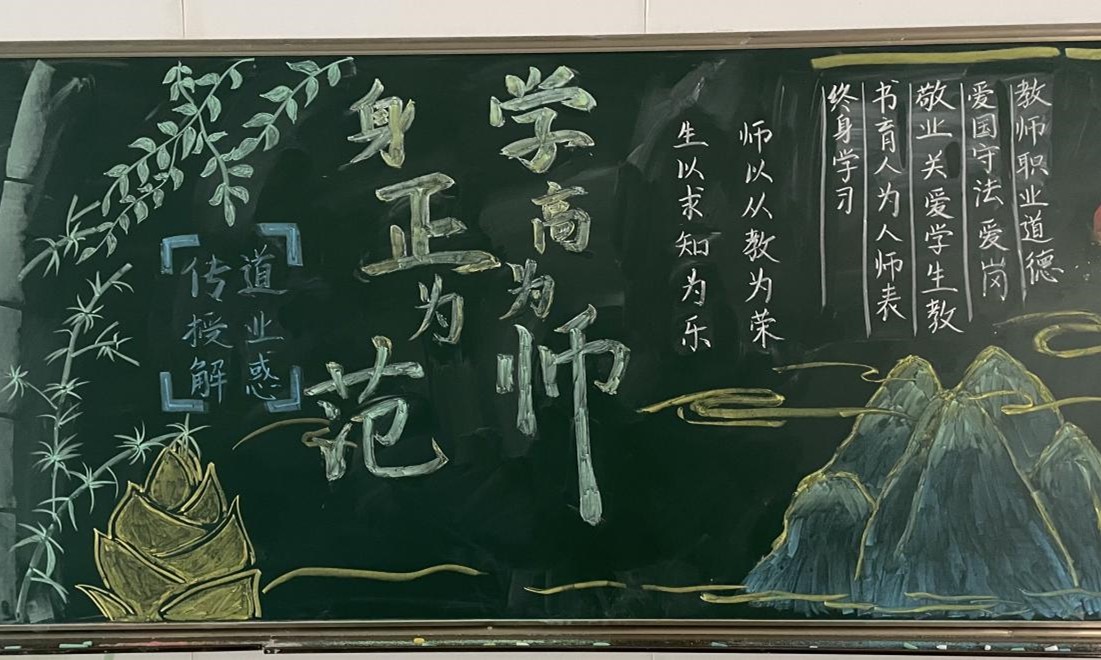 教师职业道德
爱国守法爱岗
敬业关爱学生教
书育人为人师表
终身学习
师以从教为荣
生以求知为乐
学高为师
身正为范
道业惑
传授解